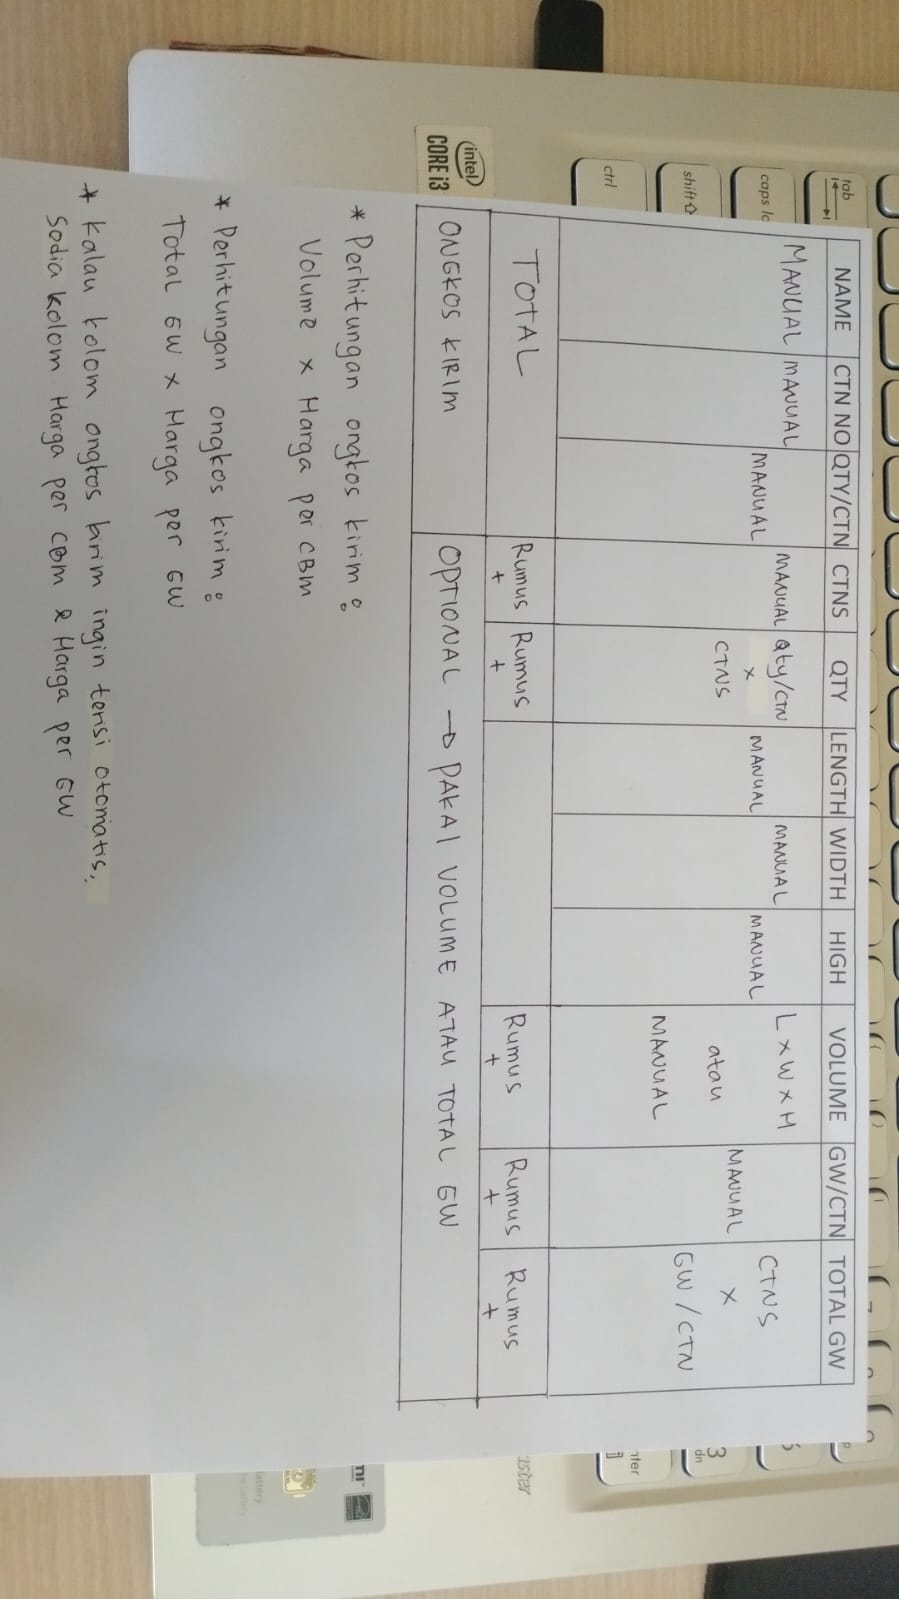 NAME CTN NO QTY/CTN CTNS QTY LENGTH WIDTH HIGH VOLUME GW/CTN TOTAL GW
MANUAL MANUAL MANUAL MANUAL Qty/CTN x CTNS MANUAL MANUAL MANUAL L x W x H atau MANUAL MANUAL CTNS x GW / CTN
TOTAL Rumus + Rumus + Rumus + Rumus + Rumus +
ONGKOS KIRIM OPTIONAL → PAKAI VOLUME ATAU TOTAL GW
* Perhitungan ongkos kirim :
Volume x Harga per CBM
* Perhitungan ongkos kirim :
Total GW x Harga per GW
* Kalau kolom ongkos kirim ingin terisi otomatis,
Sedia kolom Harga per CBM & Harga per GW
intel
CORE i3
tab
caps lo
shift
ctrl
3
dn
nter